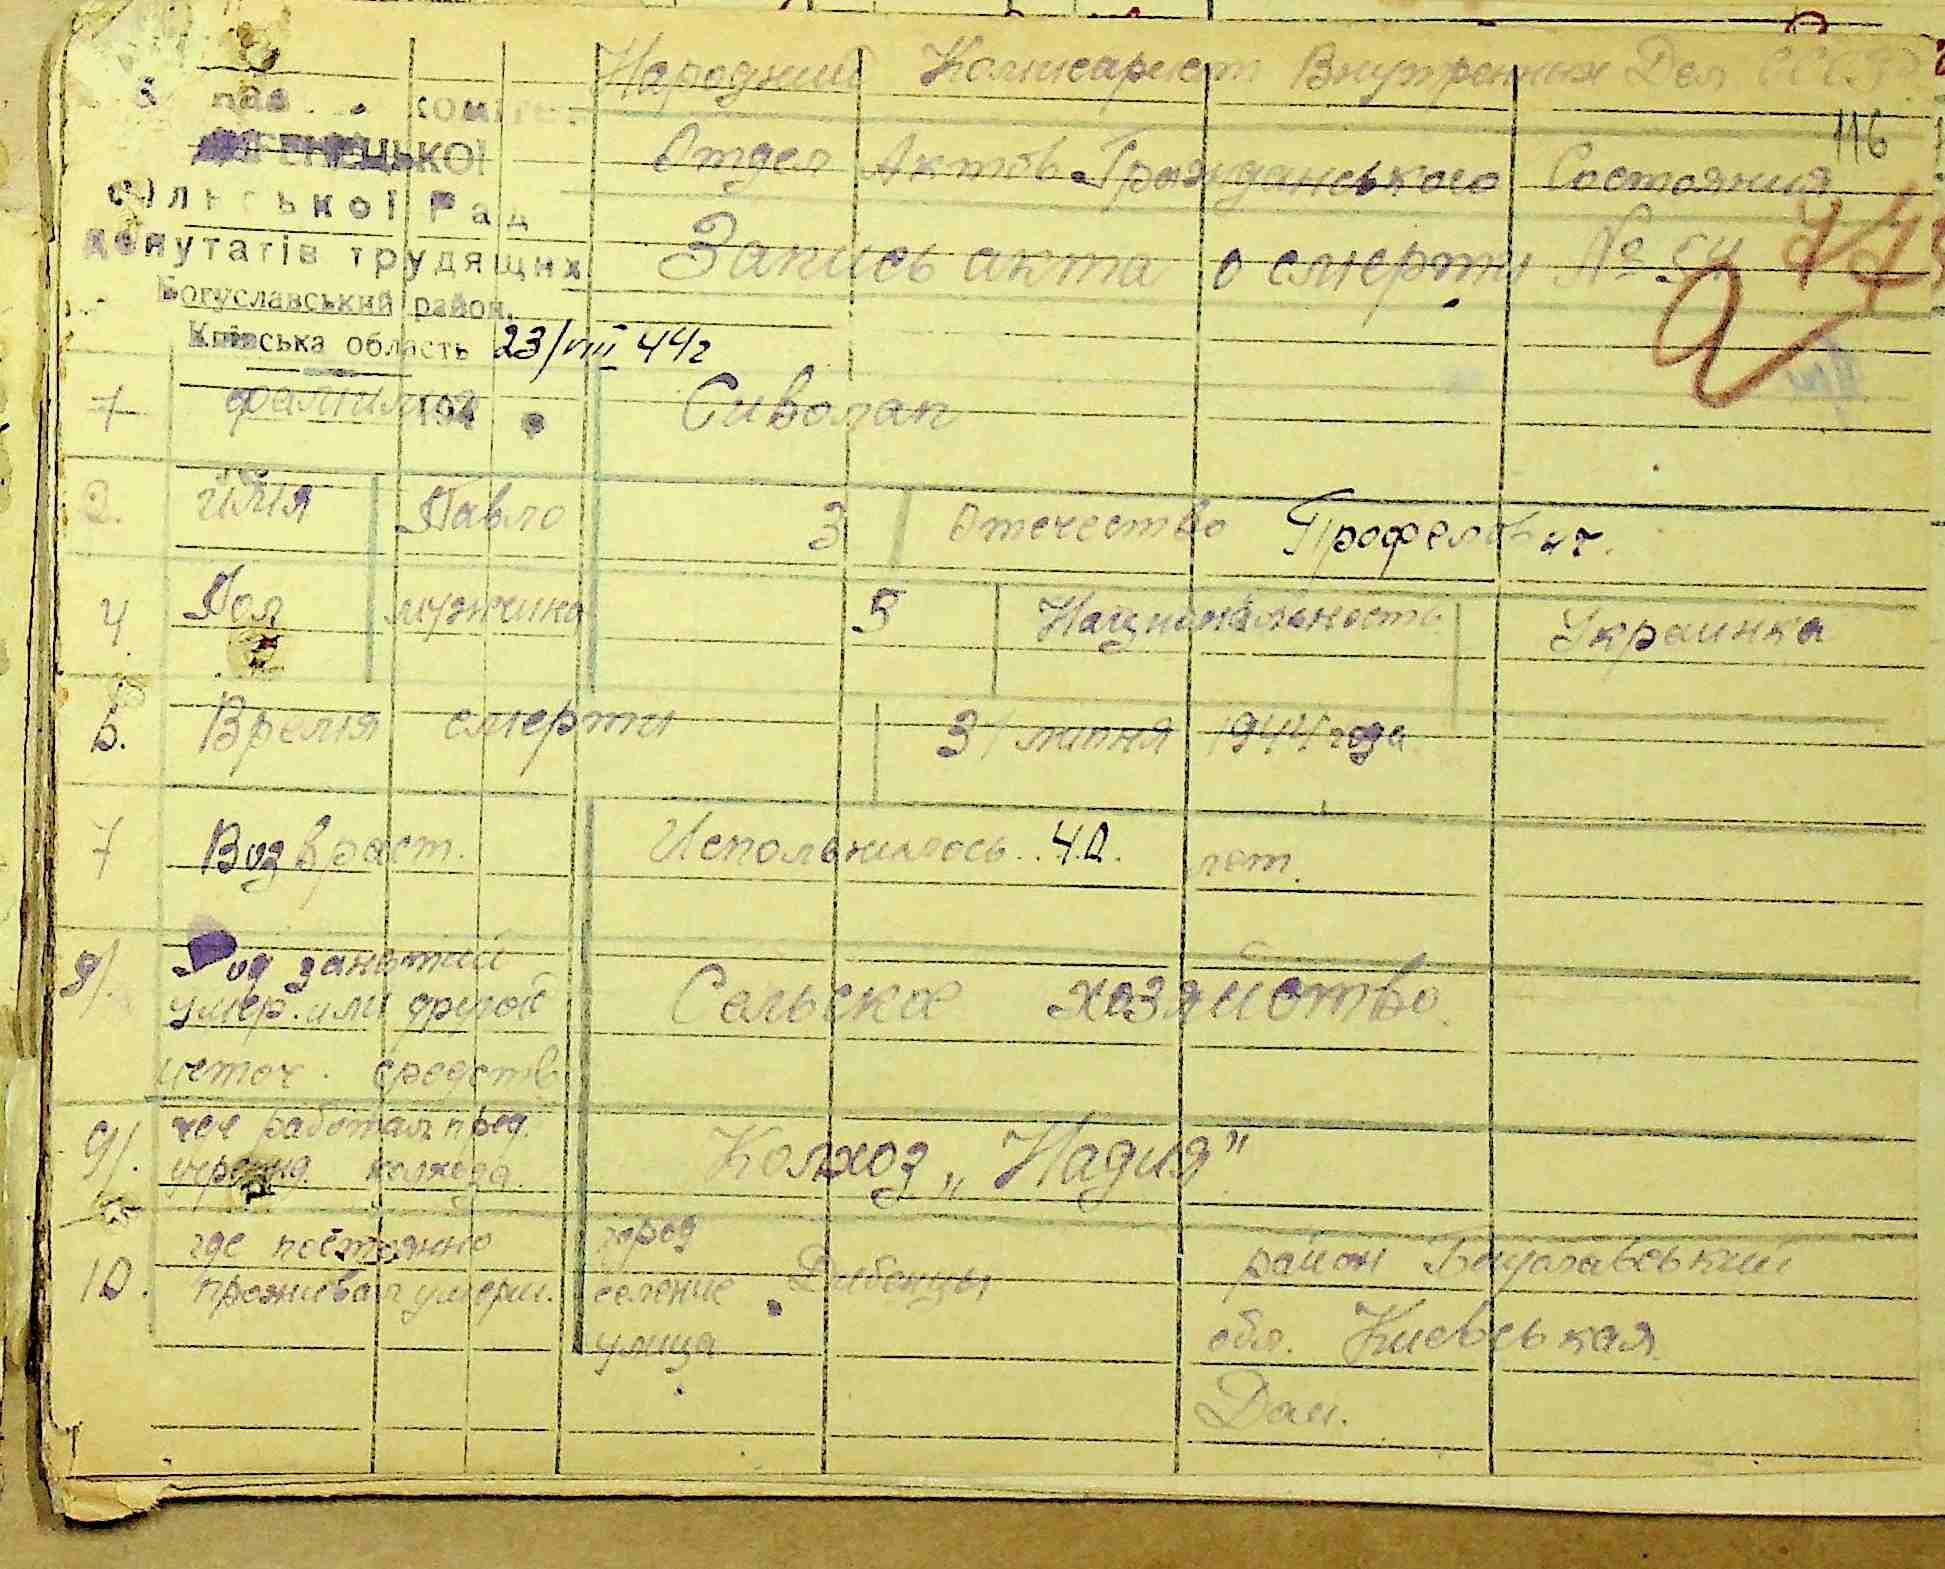 Народний Комисариат Внутренных Дел СССР
116
Отдел Актов Гражданського Состояния
Запись акта о смерти № 54
сільської Рад
депутатів трудящих
Богуславський район,
Київська область 23/VIII 44г
1 фамилия 194 Сиволап
2. имя Павло 3 Отечество Трофемович.
4 Пол мужчина 5 Национальность Украинка
6. Время смерти 31 липня 1944 года
7 Возвраст. Испольнилось 40. лет.
8/. Род занятий
умер. или другой Сельское хозяйство.
источ. средств
9/. где работал пред.
учрежд. колхоза. Колхоз „Надия"
10. где постоянно город район Богуславський
проживал умерш. селение Дибенцы
улица обл. Киевськая.
Дом.